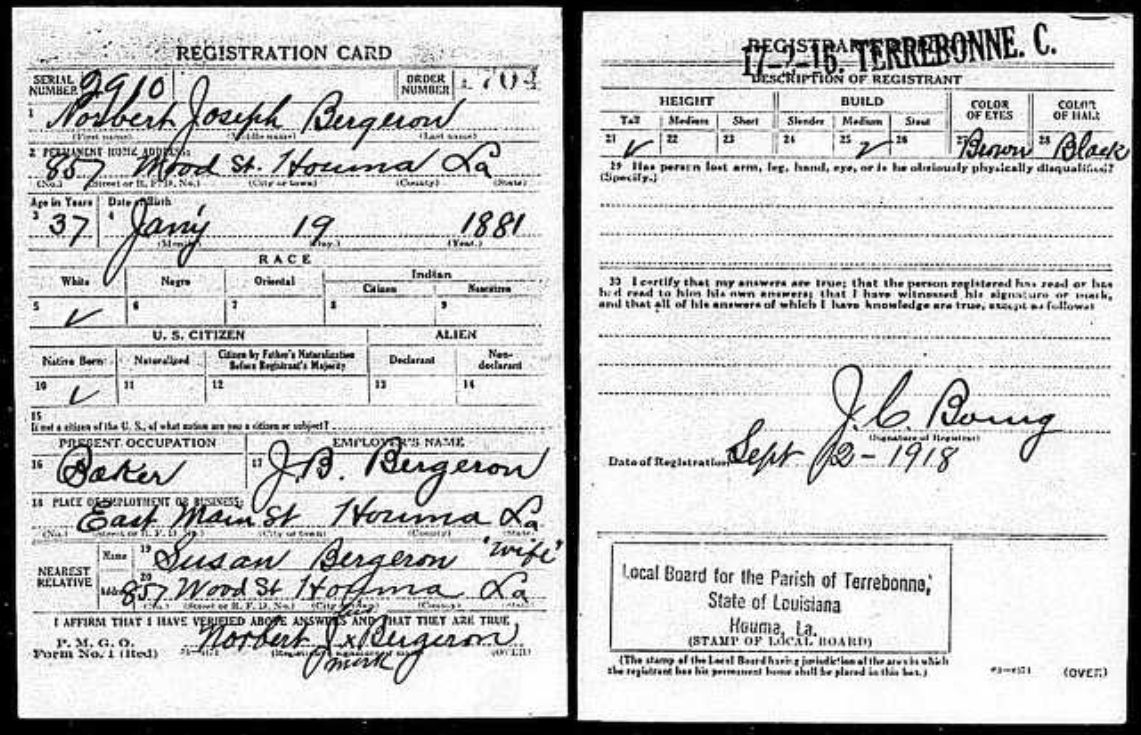 REGISTRATION CARD
SERIAL NUMBER 2910 ORDER NUMBER 1704
1 Norbert Joseph Bergeron
(First name) (Middle name) (Last name)
2 PERMANENT HOME ADDRESS:
857 Wood St. Houma La
(No.) (Street or R. F. D. No.) (City or town) (County) (State)
Age in Years Date of Birth
3 37 4 Jany 19 1881
(Month.) (Day.) (Year.)
RACE
White Negro Oriental Indian
Citizen Noncitizen
5 ✓ 6 7 8 9
U. S. CITIZEN ALIEN
Native Born Naturalized Citizen by Father's Naturalization Before Registrant's Majority Declarant Non-declarant
10 ✓ 11 12 13 14
15
If not a citizen of the U. S., of what nation are you a citizen or subject?
PRESENT OCCUPATION EMPLOYER'S NAME
16 Baker 17 J.B. Bergeron
18 PLACE OF EMPLOYMENT OR BUSINESS:
East Main St Houma La
(No.) (Street or R. F. D. No.) (City or town) (County) (State)
NEAREST RELATIVE Name 19 Susan Bergeron "wife"
Address 20 857 Wood St Houma La
(No.) (Street or R. F. D. No.) (City or town) (County) (State)
I AFFIRM THAT I HAVE VERIFIED ABOVE ANSWERS AND THAT THEY ARE TRUE
P. M. G. O.
Form No. 1 (Red) Norbert J. his x mark Bergeron
(Registrant's signature or mark) (OVER)
REGISTRAR'S REPORT
17-2-16. TERREBONNE. C.
DESCRIPTION OF REGISTRANT
HEIGHT BUILD COLOR OF EYES COLOR OF HAIR
Tall Medium Short Slender Medium Stout
21 ✓ 22 23 24 25 ✓ 26 27 Brown 28 Black
29 Has person lost arm, leg, hand, eye, or is he obviously physically disqualified?
(Specify.)
30 I certify that my answers are true; that the person registered has read or has
had read to him his own answers; that I have witnessed his signature or mark,
and that all of his answers of which I have knowledge are true, except as follows:
J. C.
(Signature of Registrar)
Date of Registration Sept 12 - 1918
Local Board for the Parish of Terrebonne,
State of Louisiana
Houma, La.
(STAMP OF LOCAL BOARD)
(The stamp of the Local Board having jurisdiction of the area in which
the registrant has his permanent home shall be placed in this box.)
(OVER)